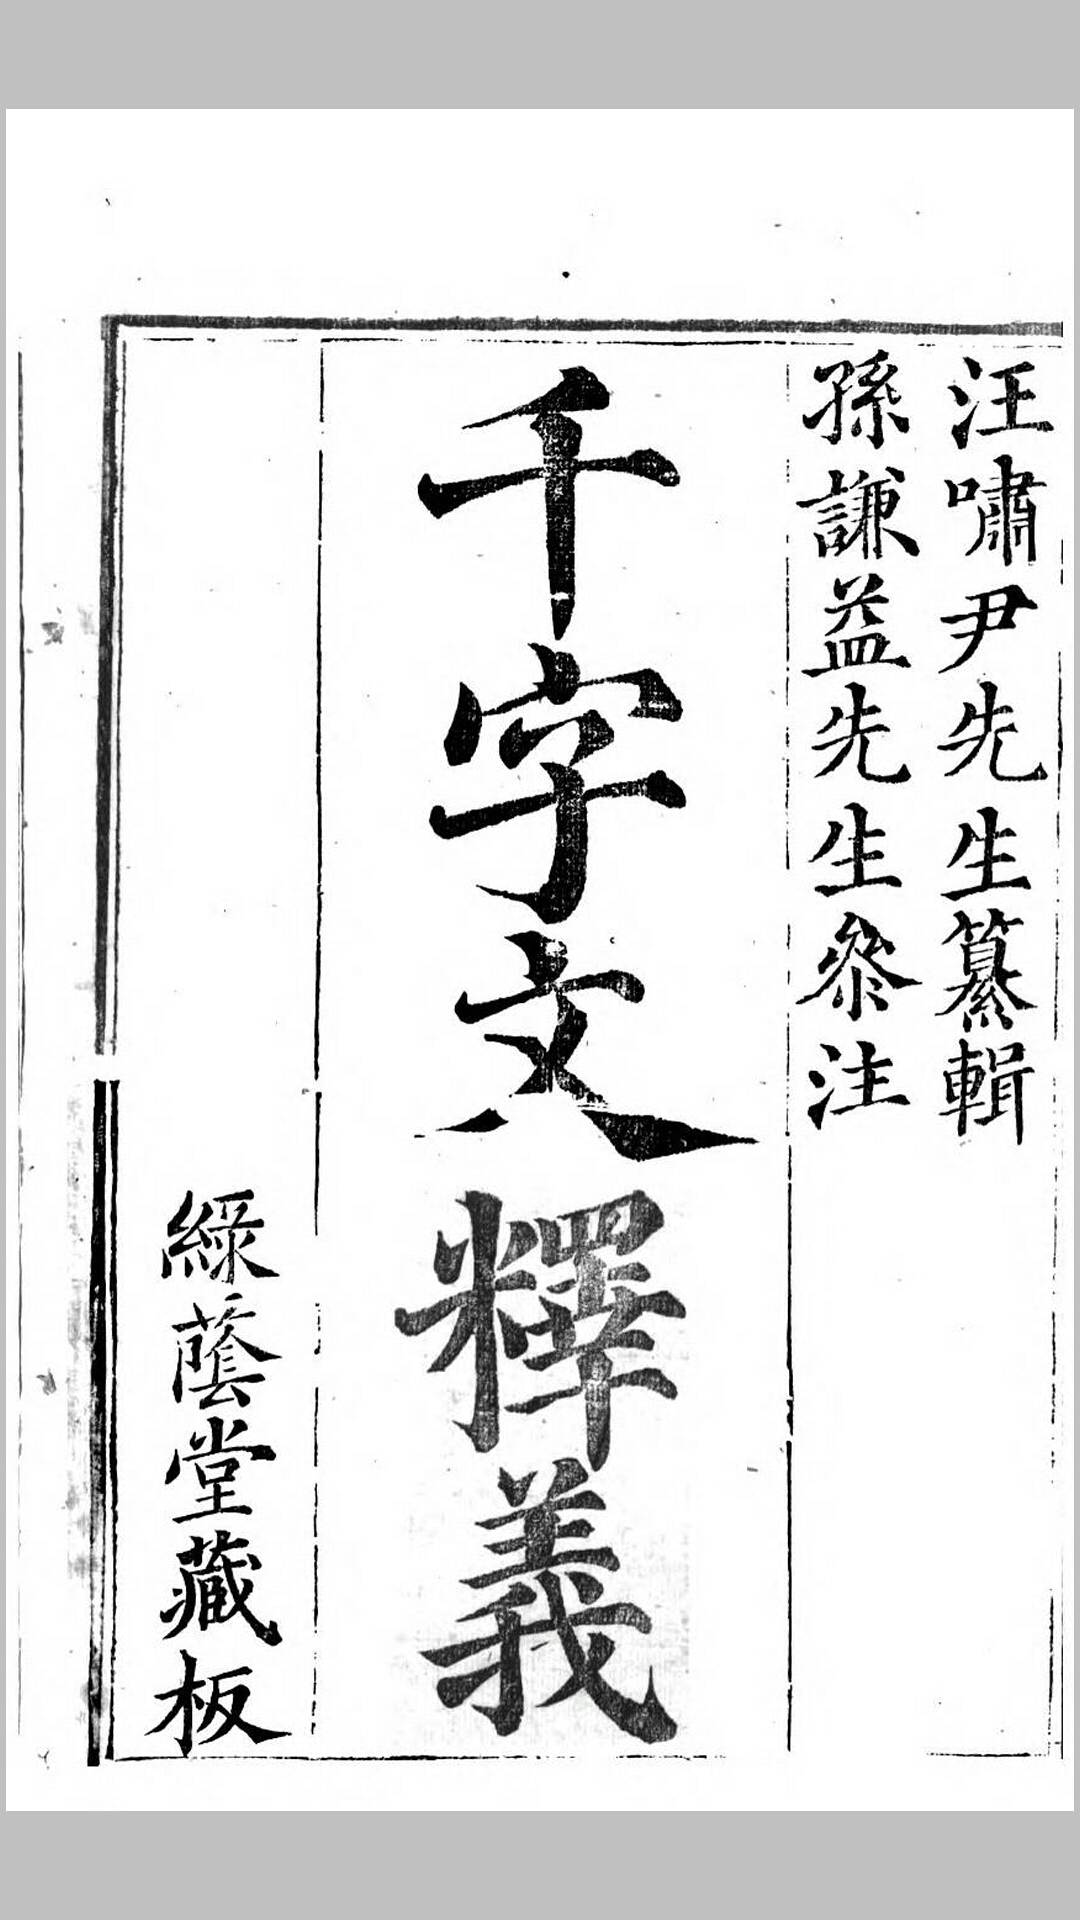 汪嘯尹先生纂輯
孫謙益先生叅注
千字文釋義
綠蔭堂藏板